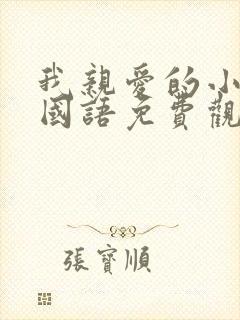 我親愛的小
國語免費觀
張寶順